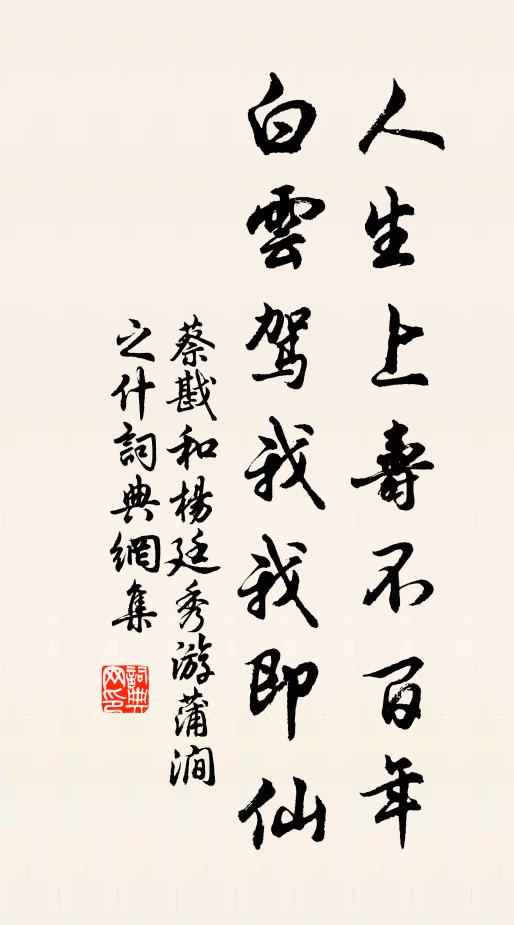 人生上壽不百年
白雲駕我我即仙
蔡戡和楊廷秀游蒲澗
之什詞典網集
詞典
网印